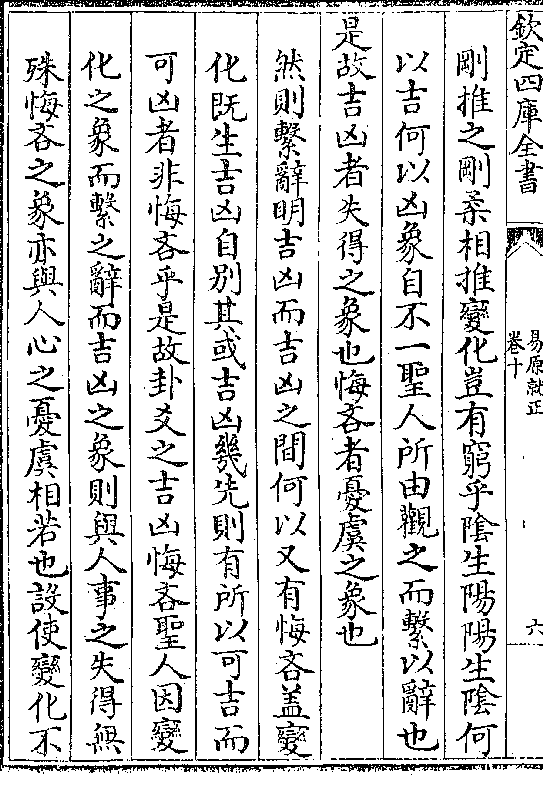 欽定四庫全書
易原就正
卷十
六
剛推之剛柔相推變化豈有窮乎陰生陽陽生陰何
以吉何以凶象自不一聖人所由觀之而繫以辭也
是故吉凶者失得之象也悔吝者憂虞之象也
然則繫辭明吉凶而吉凶之間何以又有悔吝盖變
化既生吉凶自别其或吉凶幾先則有所以可吉而
可凶者非悔吝乎是故卦爻之吉凶悔吝聖人因變
化之象而繫之辭而吉凶之象則與人事之失得無
殊悔吝之象亦與人心之憂虞相若也設使變化不